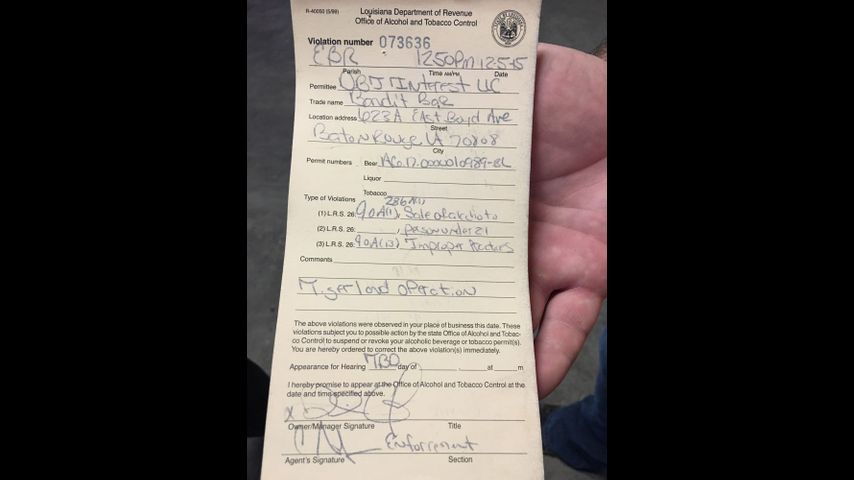 R-40050 (5/99)
Louisiana Department of Revenue
Office of Alcohol and Tobacco Control
Violation number 073636
EBR 1250PM 12-5-15
Parish Time AM/PM Date
Permittee OBJ Interest LLC
Trade name Bandit Bar
Location address 623A East Boyd Ave
Street
Baton Rouge LA 70808
City
Permit numbers Beer
Liquor
Tobacco
Type of Violations
(1) L.R.S. 26: 90A(1), Sale of alcohol to
(2) L.R.S. 26: , person under 21
(3) L.R.S. 26: 90A(13) Improper
Comments
Tigerland operation
The above violations were observed in your place of business this date. These
violations subject you to possible action by the state Office of Alcohol and Tobac-
co Control to suspend or revoke your alcoholic beverage or tobacco permit(s).
You are hereby ordered to correct the above violation(s) immediately.
Appearance for Hearing TBD day of , at m
I hereby promise to appear at the Office of Alcohol and Tobacco Control at the
date and time specified above.
X
Owner/Manager Signature Title
Enforcement
Agent's Signature Section